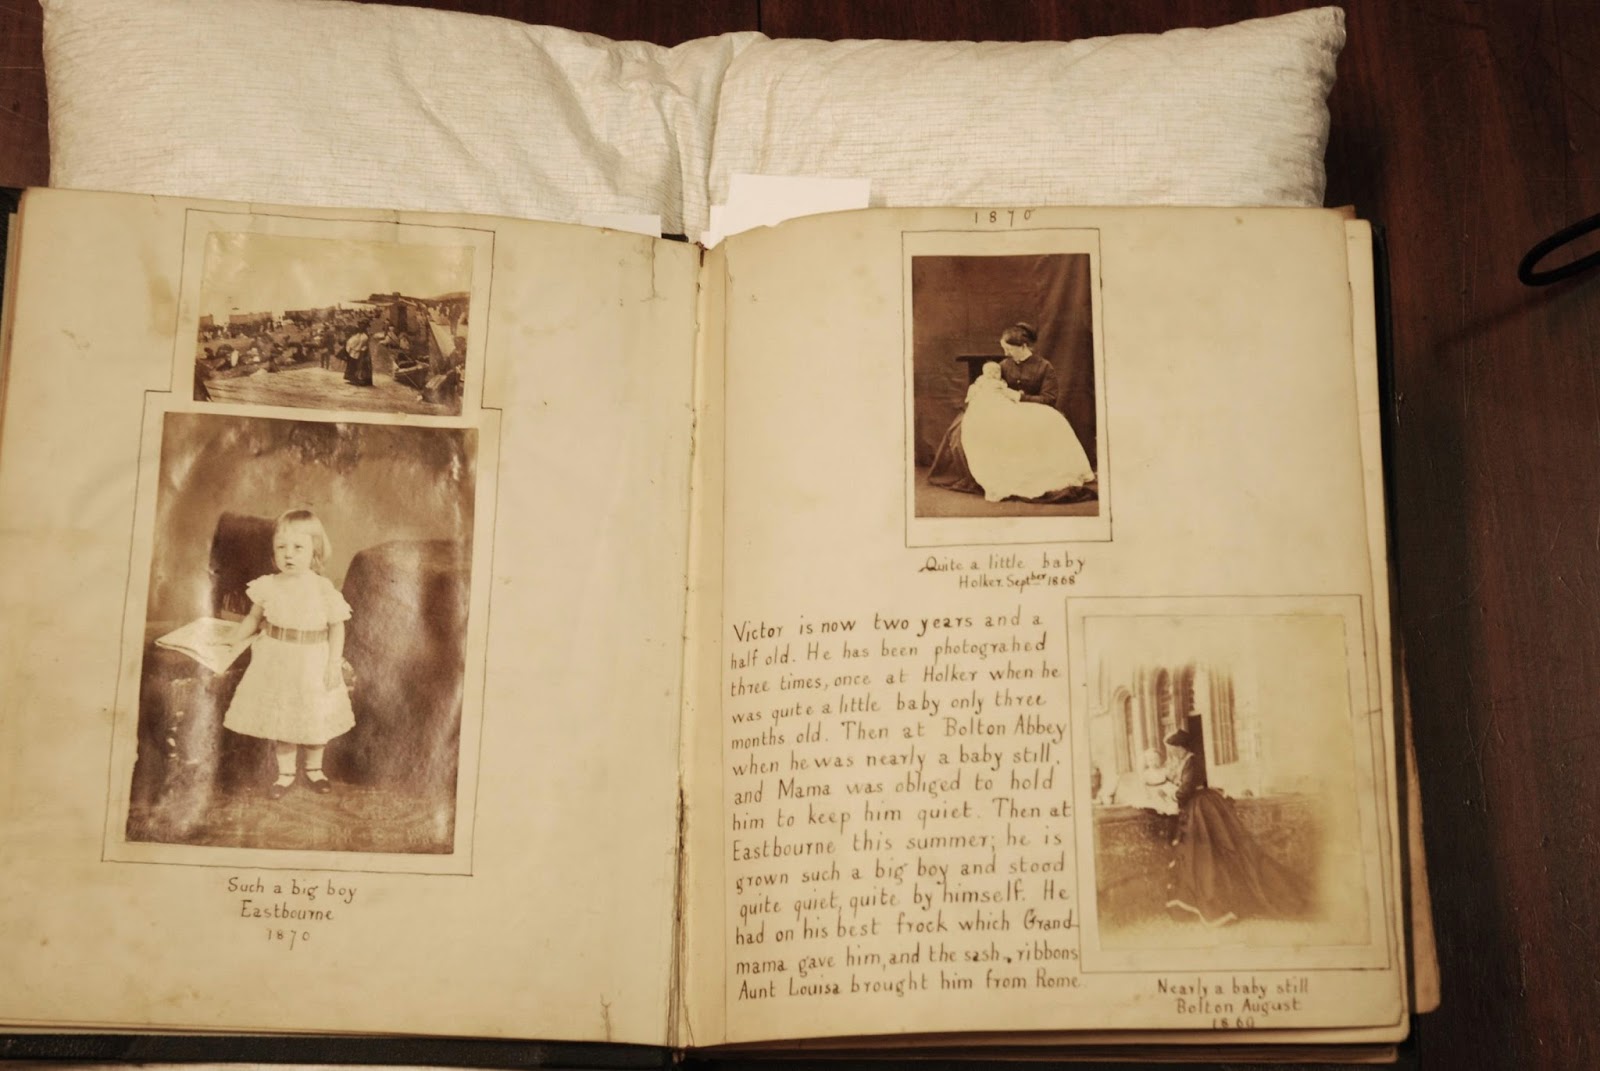 Such a big boy
Eastbourne
1870
1870
Quite a little baby
Holker. Septber 1868
Victor is now two years and a
half old. He has been photograhed
three times, once at Holker when he
was quite a little baby only three
months old. Then at Bolton Abbey
when he was nearly a baby still,
and Mama was obliged to hold
him to keep him quiet. Then at
Eastbourne this summer; he is
grown such a big boy and stood
quite quiet, quite by himself. He
had on his best frock which Grand-
mama gave him, and the sash, ribbons
Aunt Louisa brought him from Rome.
Nearly a baby still
Bolton August
1860